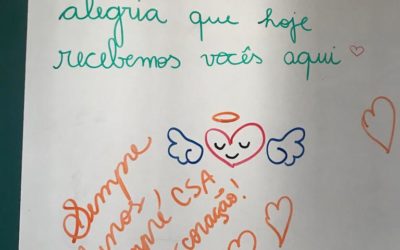 alegria que hoje
recebemos vocês aqui
Sempre
CSA
coração!